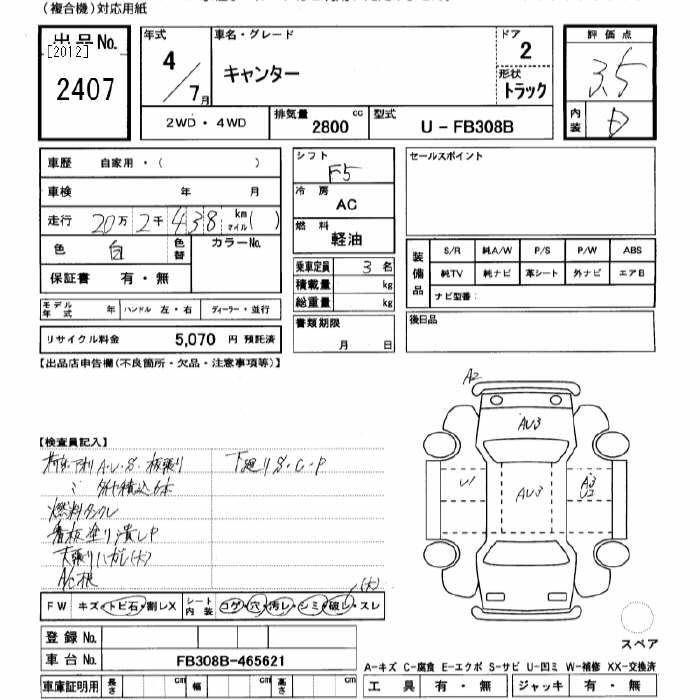 (複合機)対応用紙
出品No.
[2012]
2407
年式
4
7月
車名・グレード
キャンター
ドア
2
形状
トラック
評価点
3.5
内装
D
2WD・4WD
排気量 2800 cc
型式 U－FB308B
車歴 自家用・( )
車検 年 月
走行 20万2千438 km マイル ( )
色 白 色替 カラーNo.
保証書 有・無
モデル年式 年 ハンドル 左・右 ディーラー・並行
リサイクル料金 5,070 円 預託済
シフト
F5
冷房
AC
燃料
軽油
乗車定員 3 名
積載量 kg
総重量 kg
書類期限
月 日
セールスポイント
装備品
S/R 純A/W P/S P/W ABS
純TV 純ナビ 革シート 外ナビ エアB
ナビ型番：
後日品
【出品店申告欄(不良箇所・欠品・注意事項等)】
A2
AU3
U1
AU3
A3
U2
【検査員記入】
下廻りS・C・P
看板塗り潰しP
天張りハガレ(大)
(大)
FW キズ・トビ石・割レX シート内装 コゲ・穴・汚レ・シミ・破レ・スレ
登録No.
車台No. FB308B-465621
車庫証明用 長さ cm 幅 cm 高さ cm
スペア
A-キズ C-腐食 E-エクボ S-サビ U-凹ミ W-補修 XX-交換済
工具 有・無 ジャッキ 有・無